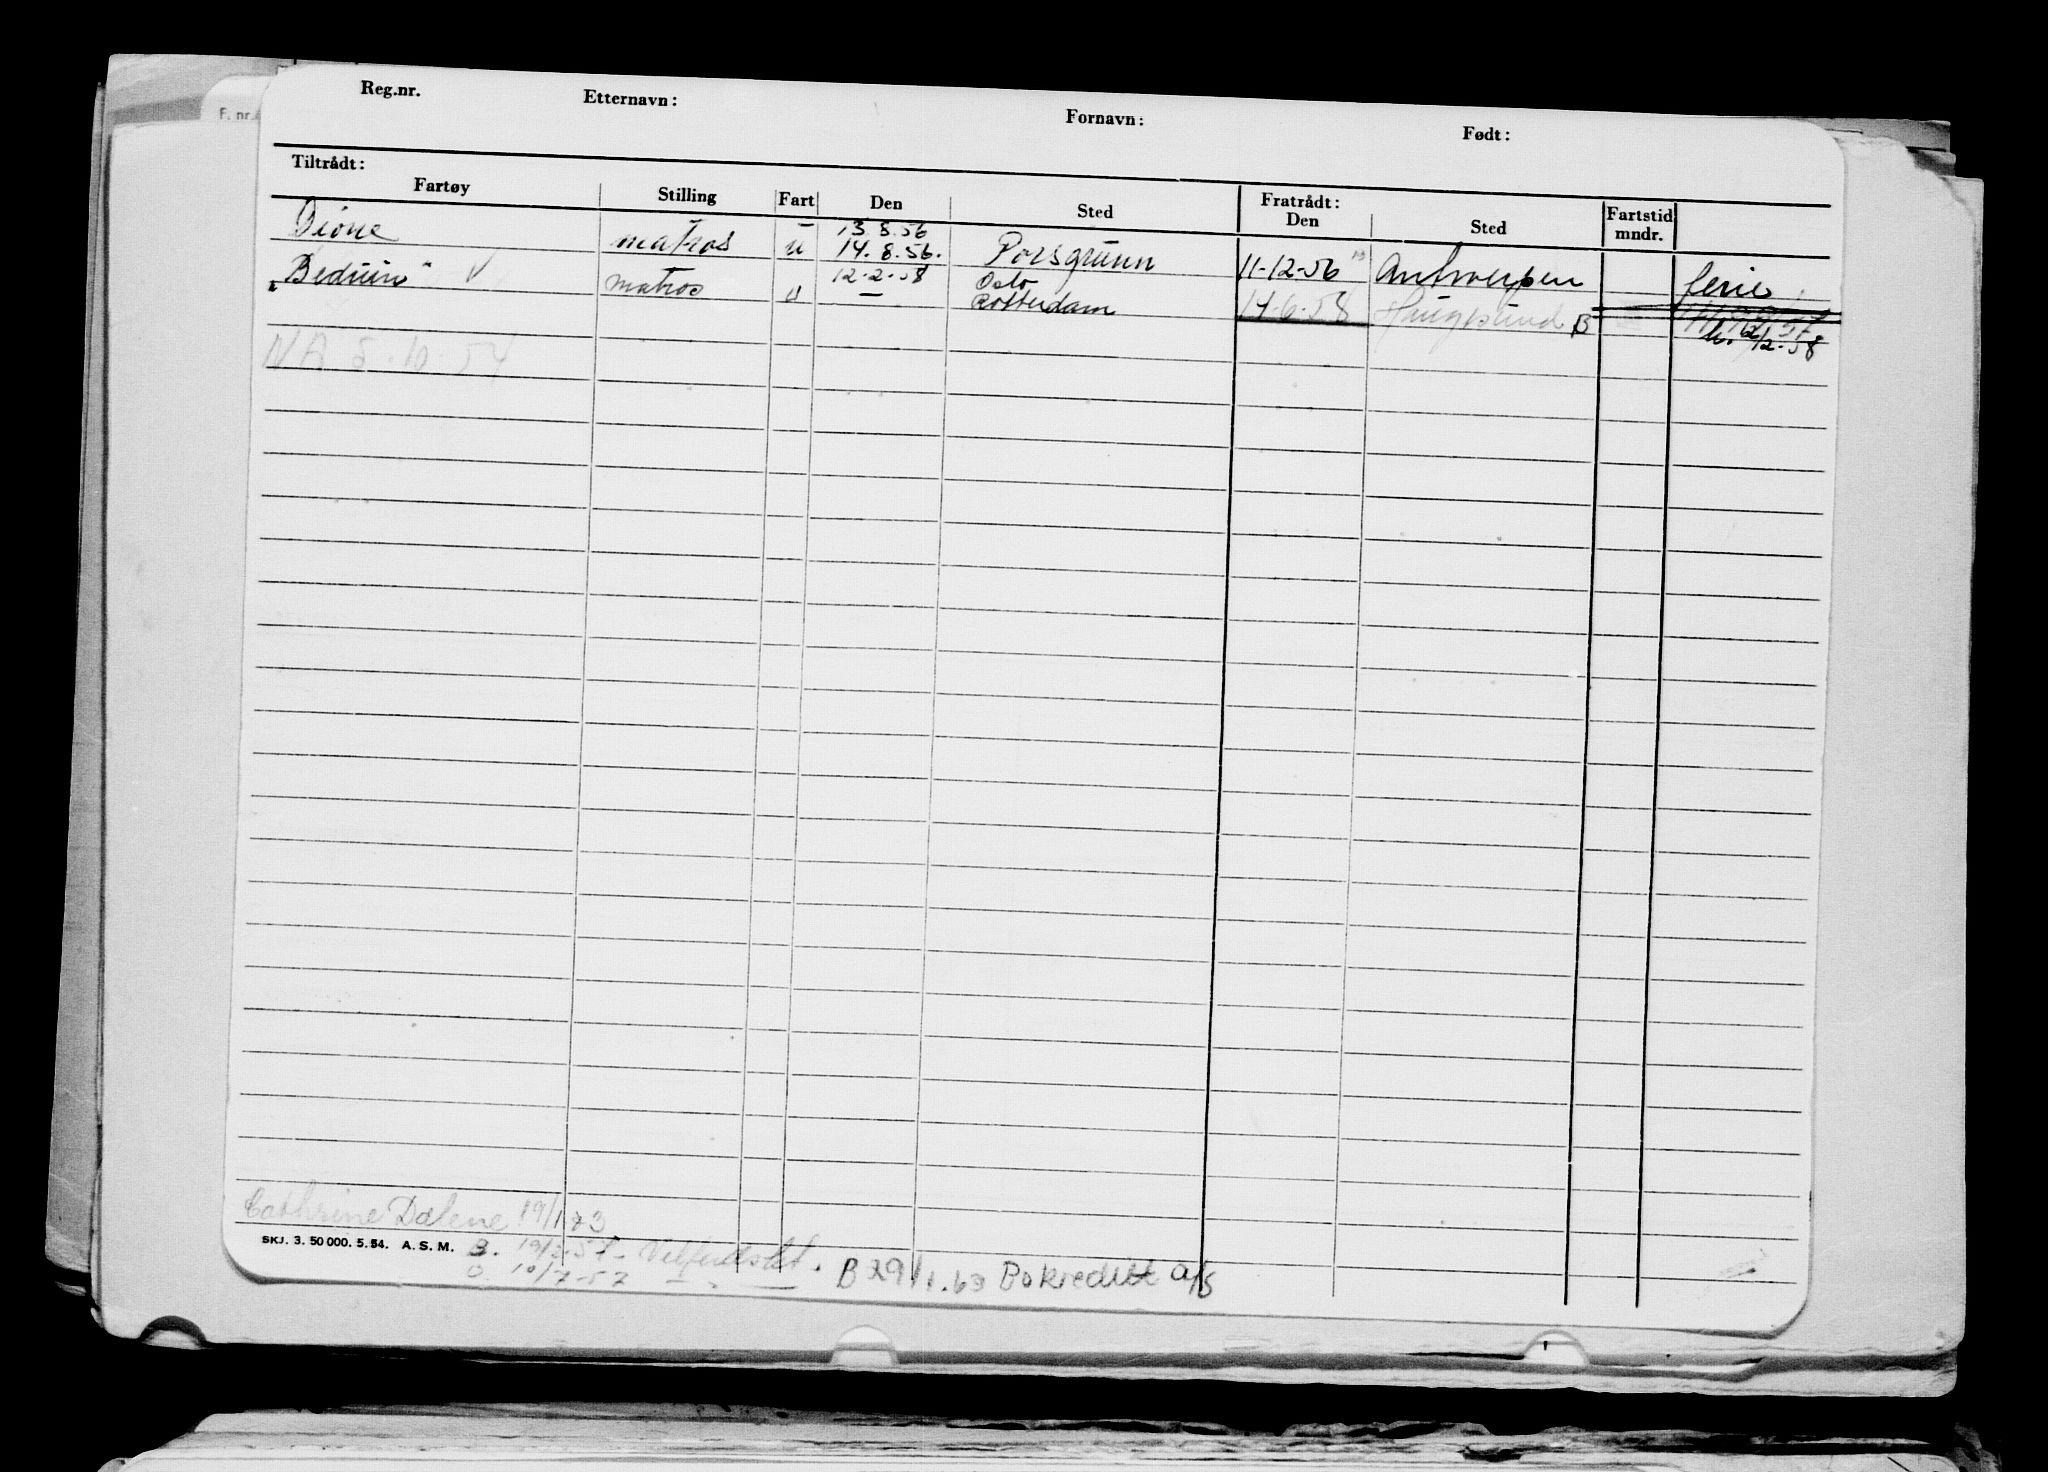 F. nr.
Reg.nr. Etternavn: Fornavn: Født:
Tiltrådt: Fratrådt:
Fartøy Stilling Fart Den Sted Den Sted Fartstid mndr.
13.8.56
Dione matros u 14.8.56. Porsgrunn 11-12-56 Antwerpen ferie
12-2-58 Oslo
"Beduin" V matros u — Rotterdam 14-6-58 B
12/2-58
NA 5-10-54
Cathrine Dalene 19/1 73
SKJ. 3. 50 000. 5. 54. A. S. M. B. 19/2-57 - Velferdsktt.
O. 10/7-57 — " —
B 29/1.63 Bokreditt a/s